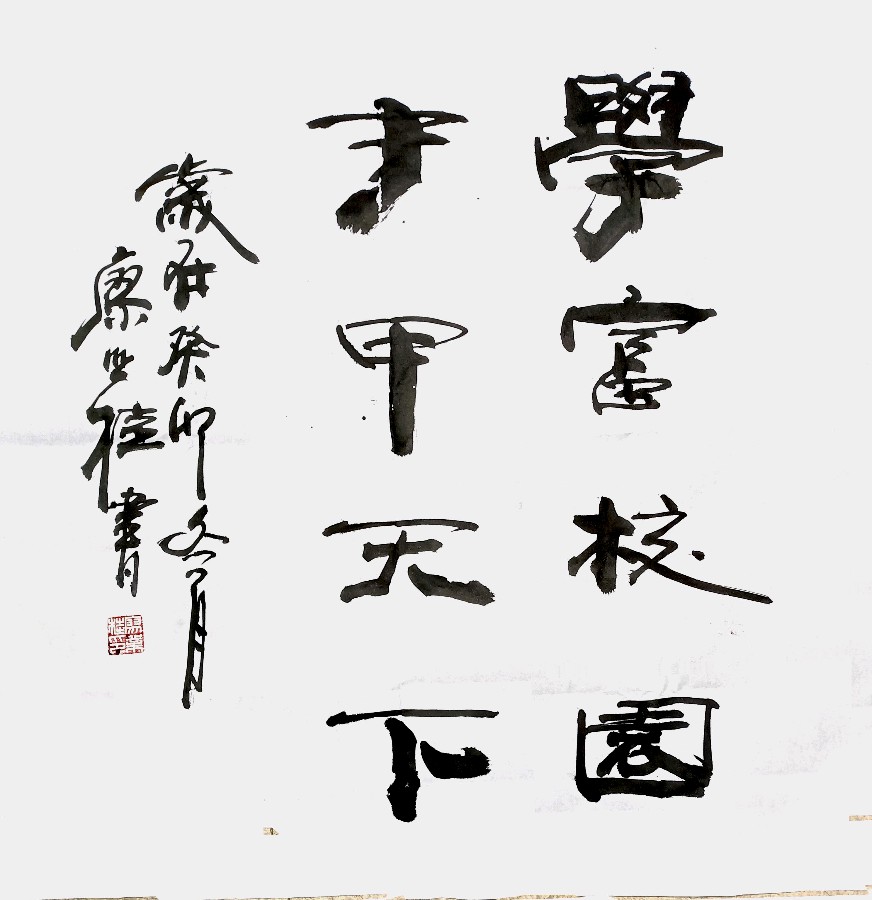 學富校園
才甲天下
歲在癸卯冬月
世桂書